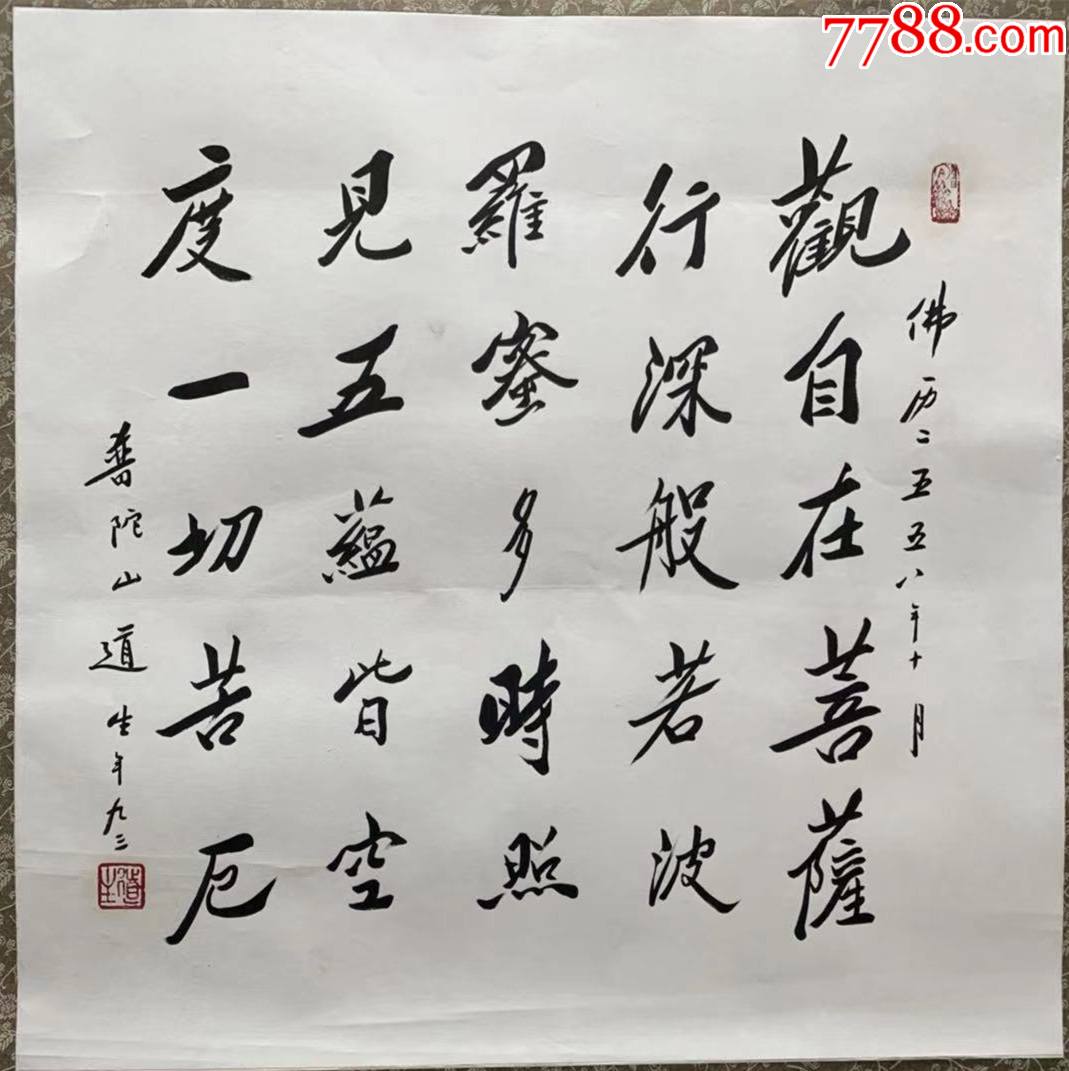 7788.com
佛历二五五八年十月
觀自在菩薩
行深般若波
羅蜜多時照
見五蘊皆空
度一切苦厄
普陀山道生年九三
道生